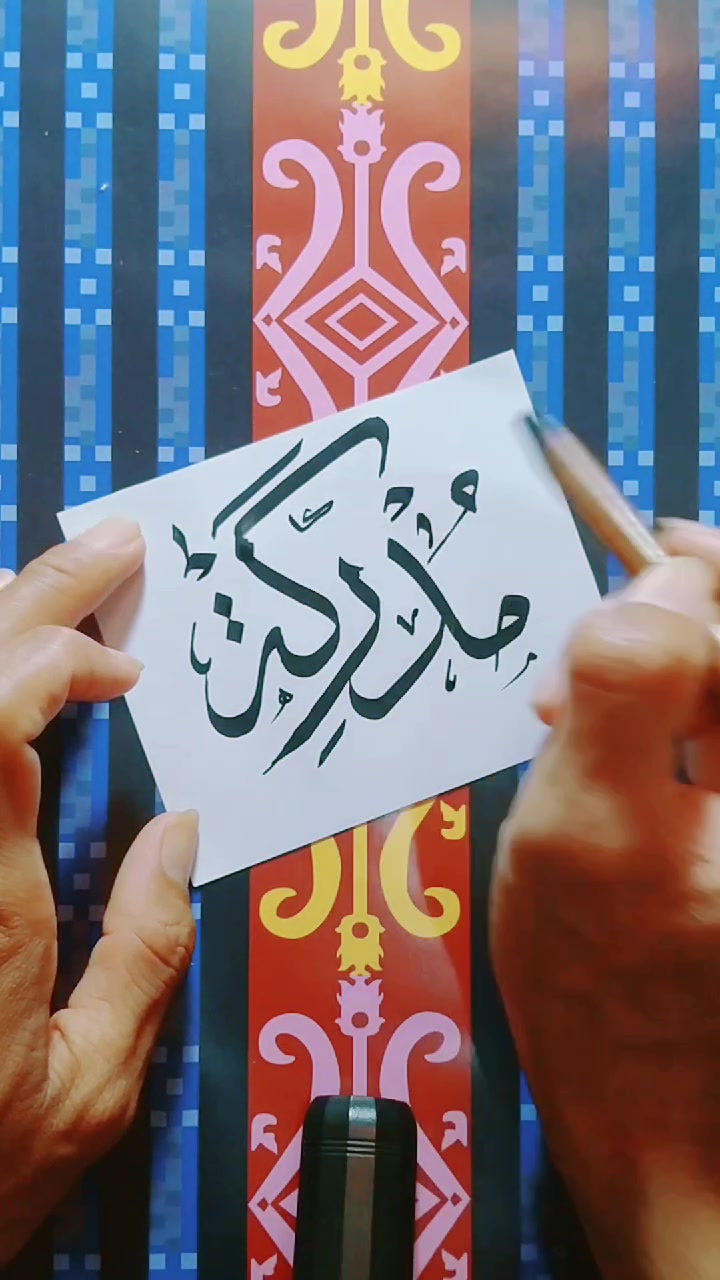 مُدْرِكَة